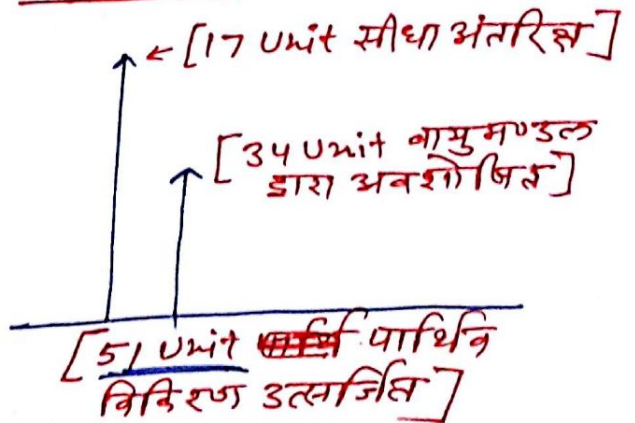 ← [17 Unit सीधा अंतरिक्ष]
[34 Unit वायुमण्डल
द्वारा अवशोषित]
[51 Unit पार्थिव
विकिरण उत्सर्जित]